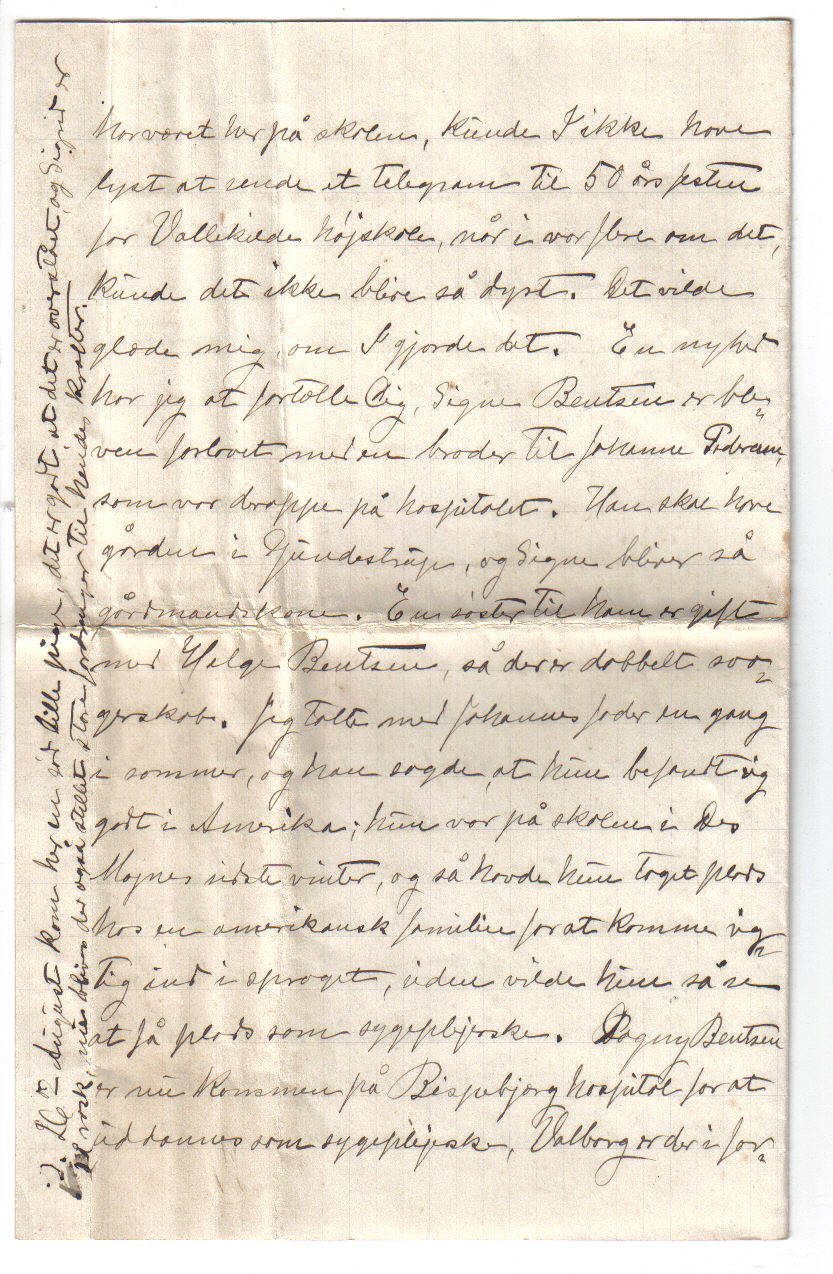 har været her på skolen, kunde I ikke have
lyst at sende et telegram til 50 års festen
for Vallekilde højskole, når i var flere om det,
kunde det ikke blive så dyrt. Det vilde
glæde mig, om I gjorde det. En nyhed
har jeg at fortælle Dig, Signe Bentsen er ble„
ven forlovet med en broder til Johanne Pedersen,
som var deroppe på hospitalet. Han skal have
gården i Gundestrup, og Signe bliver så
gårdmandskone. En søster til ham er gift
med Helge Bentsen, så der er dobbelt svo„
gerskab. Jeg talte med Johannes fader en gang
i sommer, og han sagde, at hun befandt sig
godt i Amerika; hun var på skolen i Des
Mojnes sidste vinter, og så havde hun taget plads
hos en amerikansk familie for at komme rig„
tig ind i sproget, siden vilde hun så se
at få plads som sygeplejerske. Dagny Bentsen
er nu kommen på Bispebjerg hospital for at
uddannes som sygeplejeske, Valborg er der i for„
d. 26 august kom her en sød lille pige, det er godt at det er overstået, og Sigrid er
rask, nu blives der også stillet store fordringer til hendes kræfter.